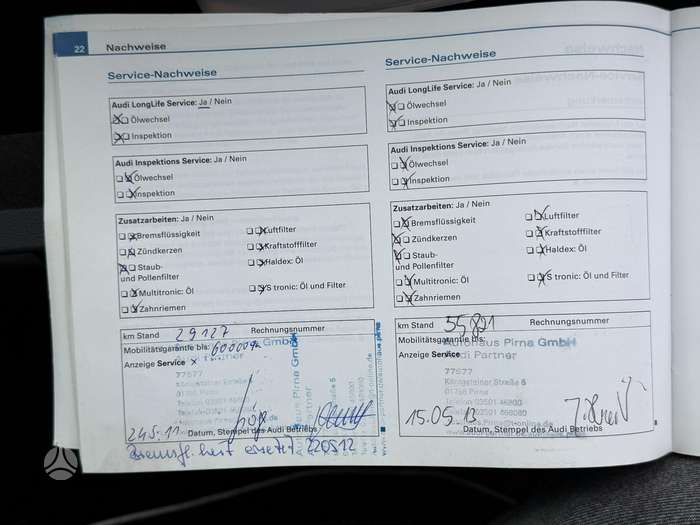 22 Nachweise
Service-Nachweise
Audi LongLife Service: Ja / Nein
Ölwechsel
Inspektion
Audi Inspektions Service: Ja / Nein
Ölwechsel
Inspektion
Zusatzarbeiten: Ja / Nein
Bremsflüssigkeit
Luftfilter
Zündkerzen
Kraftstofffilter
Staub-
und Pollenfilter
Haldex: Öl
Multitronic: Öl
S tronic: Öl und Filter
Zahnriemen
km Stand 29127 Rechnungsnummer
Mobilitätsgarantie bis: 60000
Anzeige Service
77577
Autohaus Pirna GmbH
24.5.11
Datum, Stempel des Audi Betriebs
220512
Service-Nachweise
Audi LongLife Service: Ja / Nein
Ölwechsel
Inspektion
Audi Inspektions Service: Ja / Nein
Ölwechsel
Inspektion
Zusatzarbeiten: Ja / Nein
Bremsflüssigkeit
Luftfilter
Zündkerzen
Kraftstofffilter
Staub-
und Pollenfilter
Haldex: Öl
Multitronic: Öl
S tronic: Öl und Filter
Zahnriemen
km Stand 55821 Rechnungsnummer
Mobilitätsgarantie bis:
Autohaus Pirna GmbH
Anzeige Service
Audi Partner
77577
Königsteiner Straße
01796 Pirna
Telefon 03501
15.05.13
Datum, Stempel des Audi Betriebs